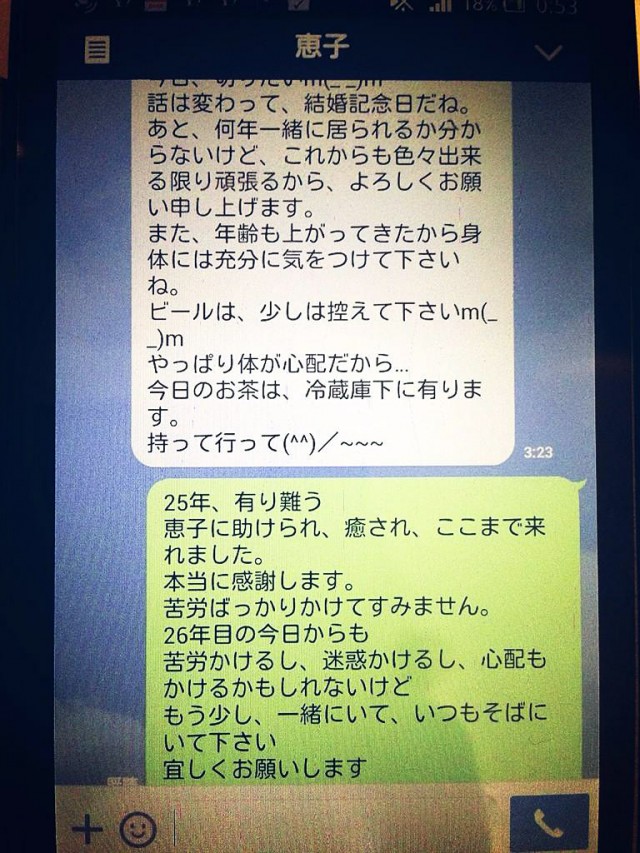 18%
0:53
恵子
話は変わって、結婚記念日だね。
あと、何年一緒に居られるか分か
らないけど、これからも色々出来
る限り頑張るから、よろしくお願
い申し上げます。
また、年齢も上がってきたから身
体には充分に気をつけて下さい
ね。
ビールは、少しは控えて下さいm(_
_)m
やっぱり体が心配だから...
今日のお茶は、冷蔵庫下に有りま
す。
持って行って(^^)／~~~
3:23
25年、有り難う
恵子に助けられ、癒され、ここまで来
れました。
本当に感謝します。
苦労ばっかりかけてすみません。
26年目の今日からも
苦労かけるし、迷惑かけるし、心配も
かけるかもしれないけど
もう少し、一緒にいて、いつもそばに
いて下さい
宜しくお願いします